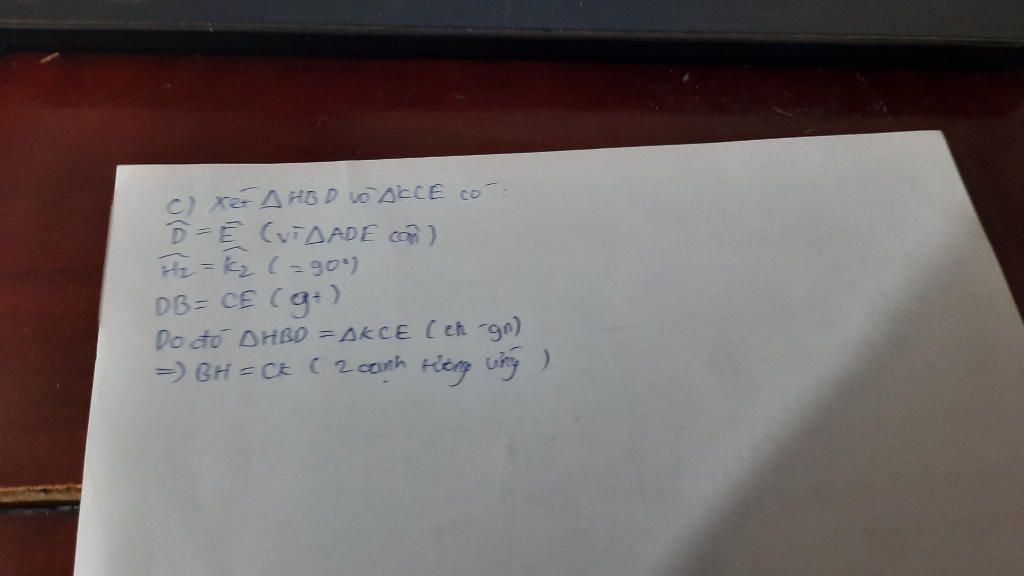 c) Xét △HBD và △KCE có:
D̂ = Ê (vì △ADE cân)
Ĥ2 = K̂2 (=90°)
DB = CE (gt)
Do đó △HBD = △KCE (ch-gn)
=> BH = CK (2 cạnh tương ứng)